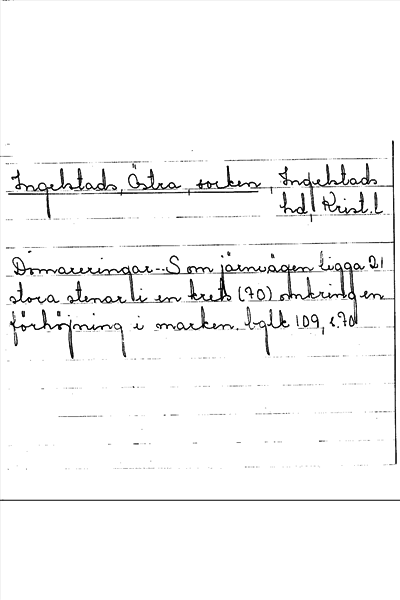 Ingelstads, Östra, socken, Ingelstads
hd, Krist. l
Domareringar. - S om järnvägen ligga 21
stora stenar i en krets (70) omkring en
förhöjning i marken. bglk 109, s. 70